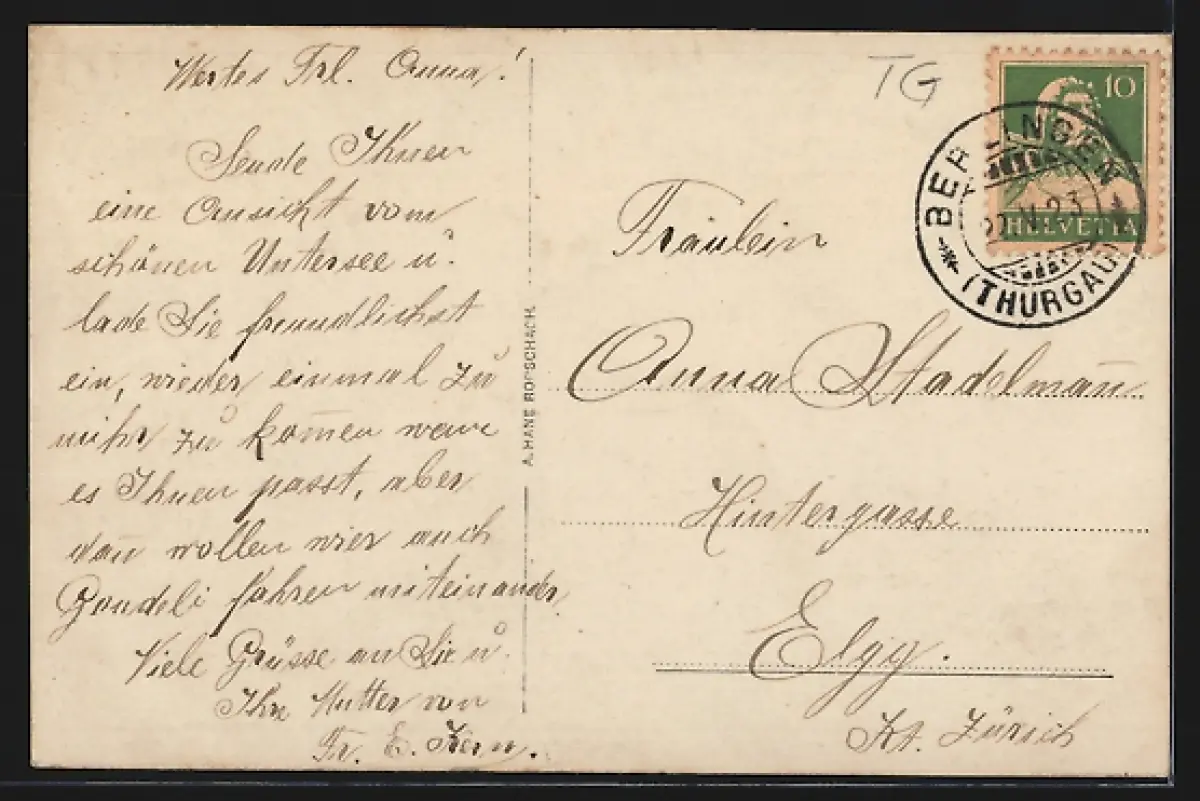 Wertes Frl. Anna!
Sende Ihnen
eine Ansicht vom
schönen Untersee u.
lade Sie freundlichst
ein, wieder einmal zu
mihr zu kom̅en wenn
es Ihnen passt, aber
dan̅ wollen wier auch
Gondeli fahren miteinander
Viele Grüsse an Sie u.
Ihre Mutter von
Fr. E. Kern.
A. HANE RORSCHACH.
TG
10
HELVETIA
BERLINGEN
IV. 23
(THURGAU)
Fräulein
Anna Stadelman̅
Hintergasse
Elgg.
Kt. Zürich